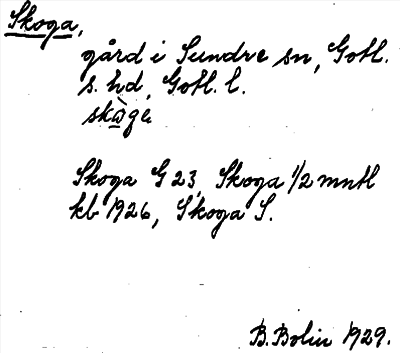 Skoga,
gård i Sundre sn, Gotl.
s. hd, Gotl. l.
skò̱ge
Skoga G 23, Skoga 1/2 mntl
kb 1926, Skoga S.
B. Bolin 1929.